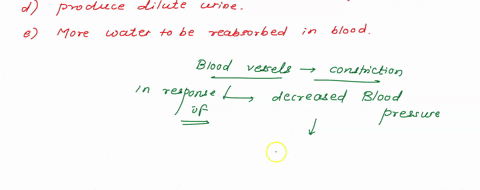 d) produce dilute urine.
e) More water to be reabsorbed in blood.
Blood vessels → constriction
in response of ↳ decreased Blood pressure
↓